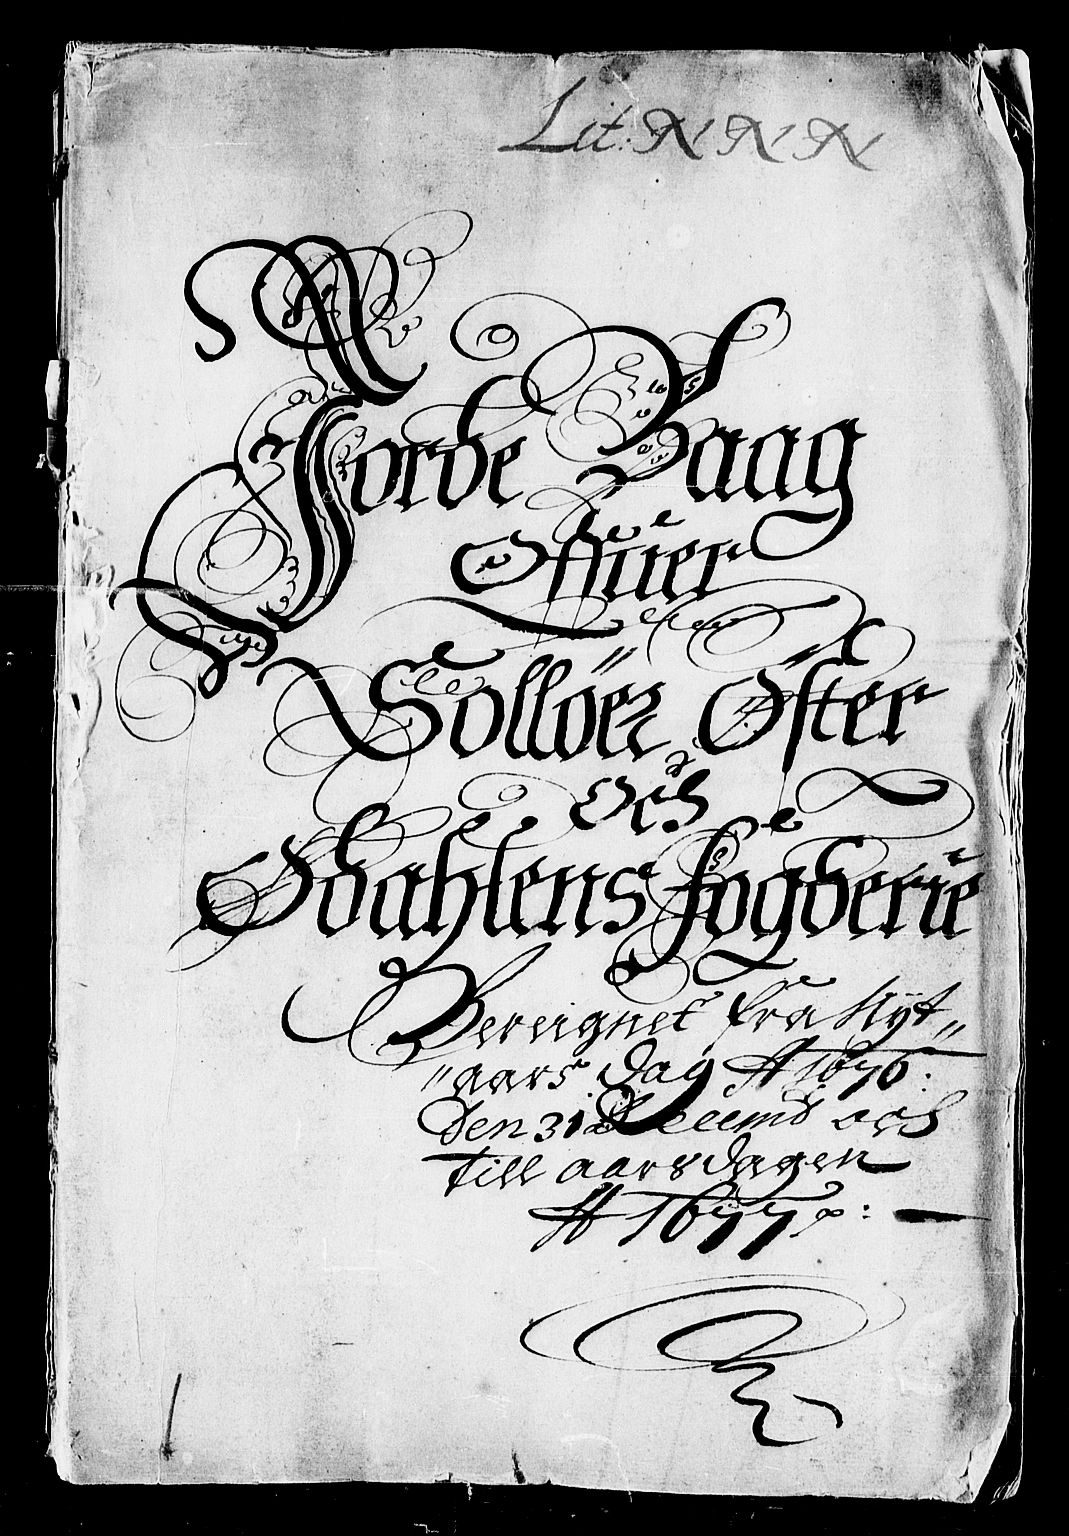 Lit: N N N
Jorde Baag
Offuer
Sollöer Öster
Och
Odahlens fogderie
Bereignet fra Nyt„
„aars dag A 1676:
den 31 Decemb och
till aarsdagen
A 1677